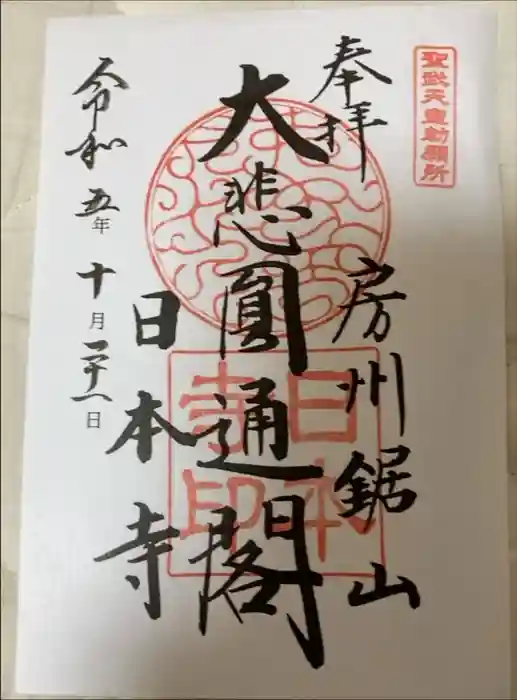 聖武天皇勅願所
奉拝
房州鋸山
大悲圓通閣
日本寺
日本寺印
令和五年十月二十一日